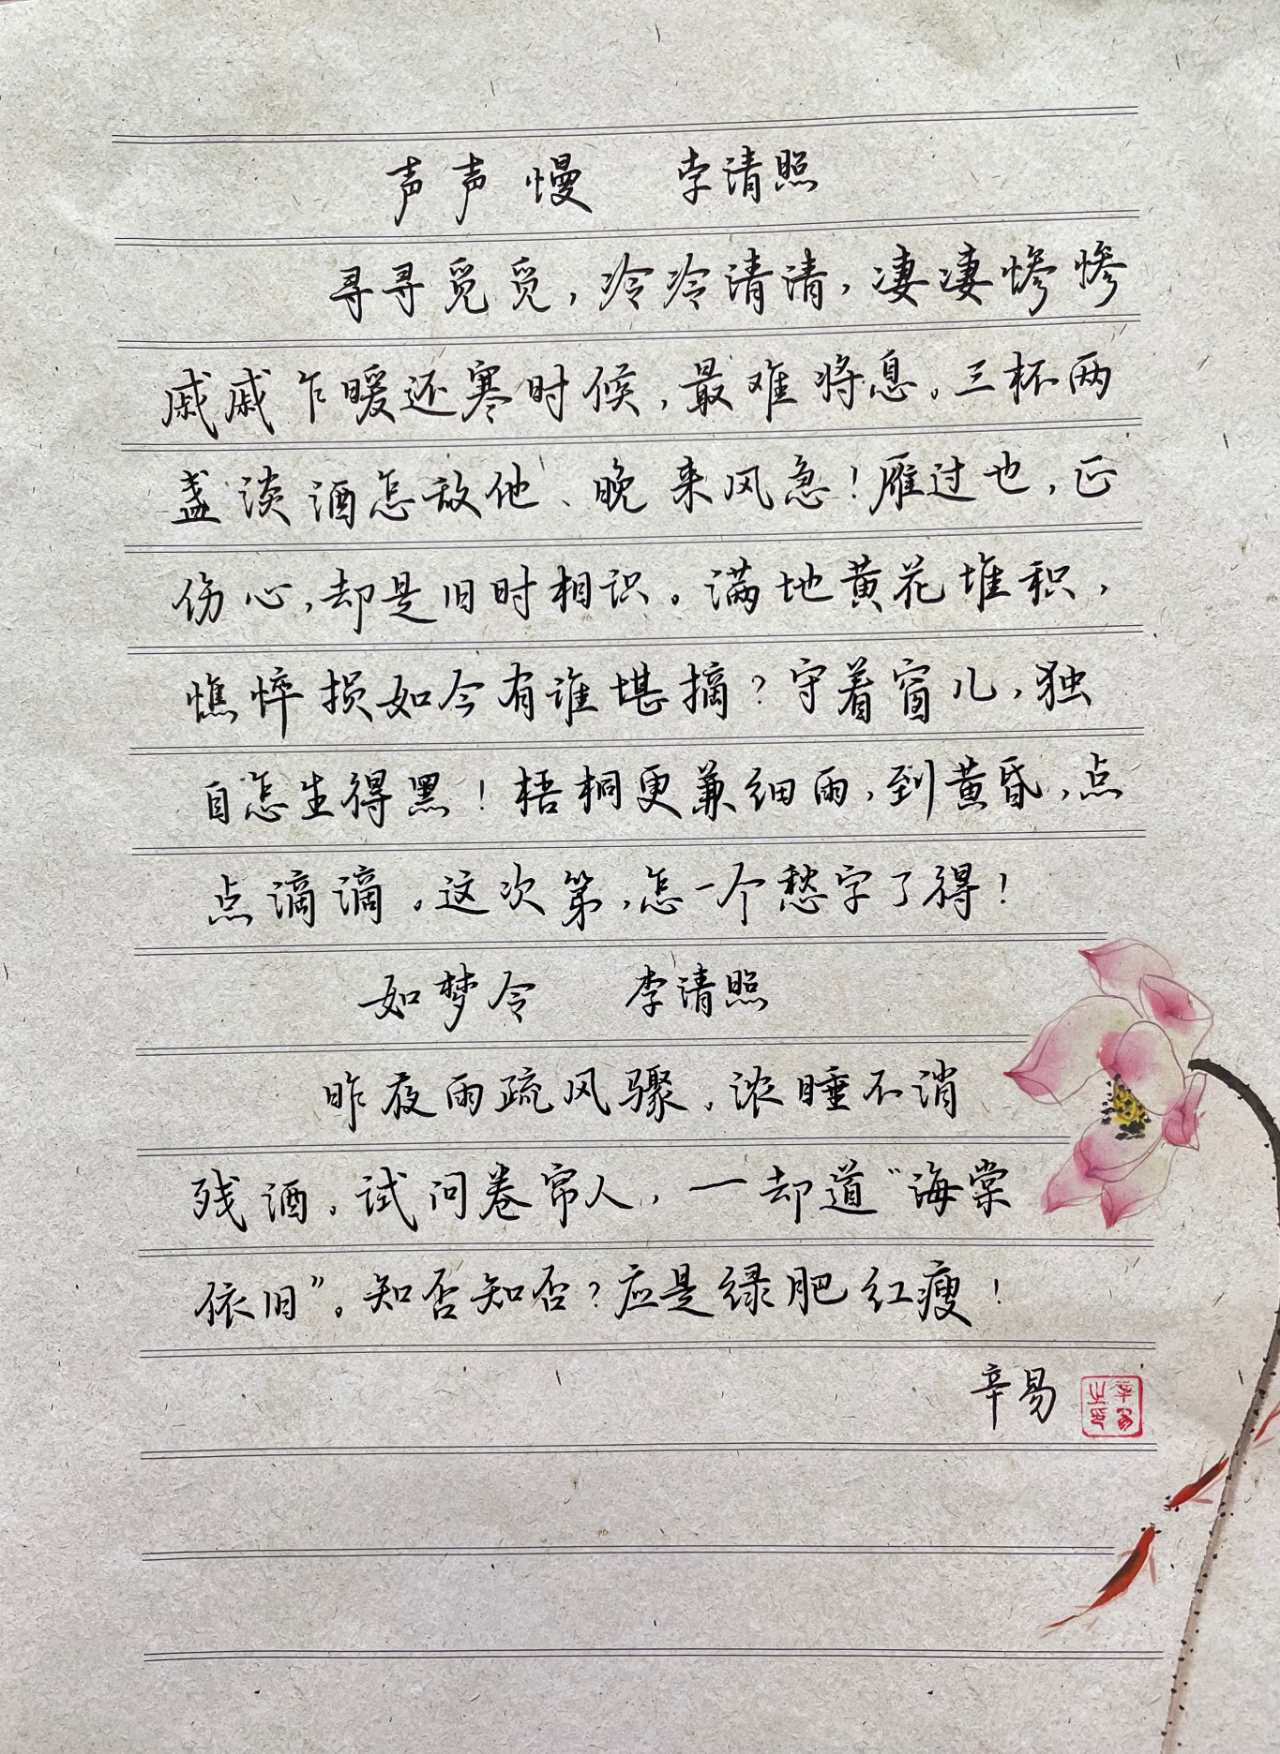 声声慢 李清照
寻寻觅觅，冷冷清清，凄凄惨惨
戚戚乍暖还寒时候，最难将息。三杯两
盏淡酒怎敌他、晚来风急！雁过也，正
伤心，却是旧时相识。满地黄花堆积，
憔悴损如今有谁堪摘？守着窗儿，独
自怎生得黑！梧桐更兼细雨，到黄昏，点
点滴滴。这次第，怎一个愁字了得！
如梦令 李清照
昨夜雨疏风骤。浓睡不消
残酒。试问卷帘人，一却道“海棠
依旧”。知否知否？应是绿肥红瘦！
辛易
辛易之印